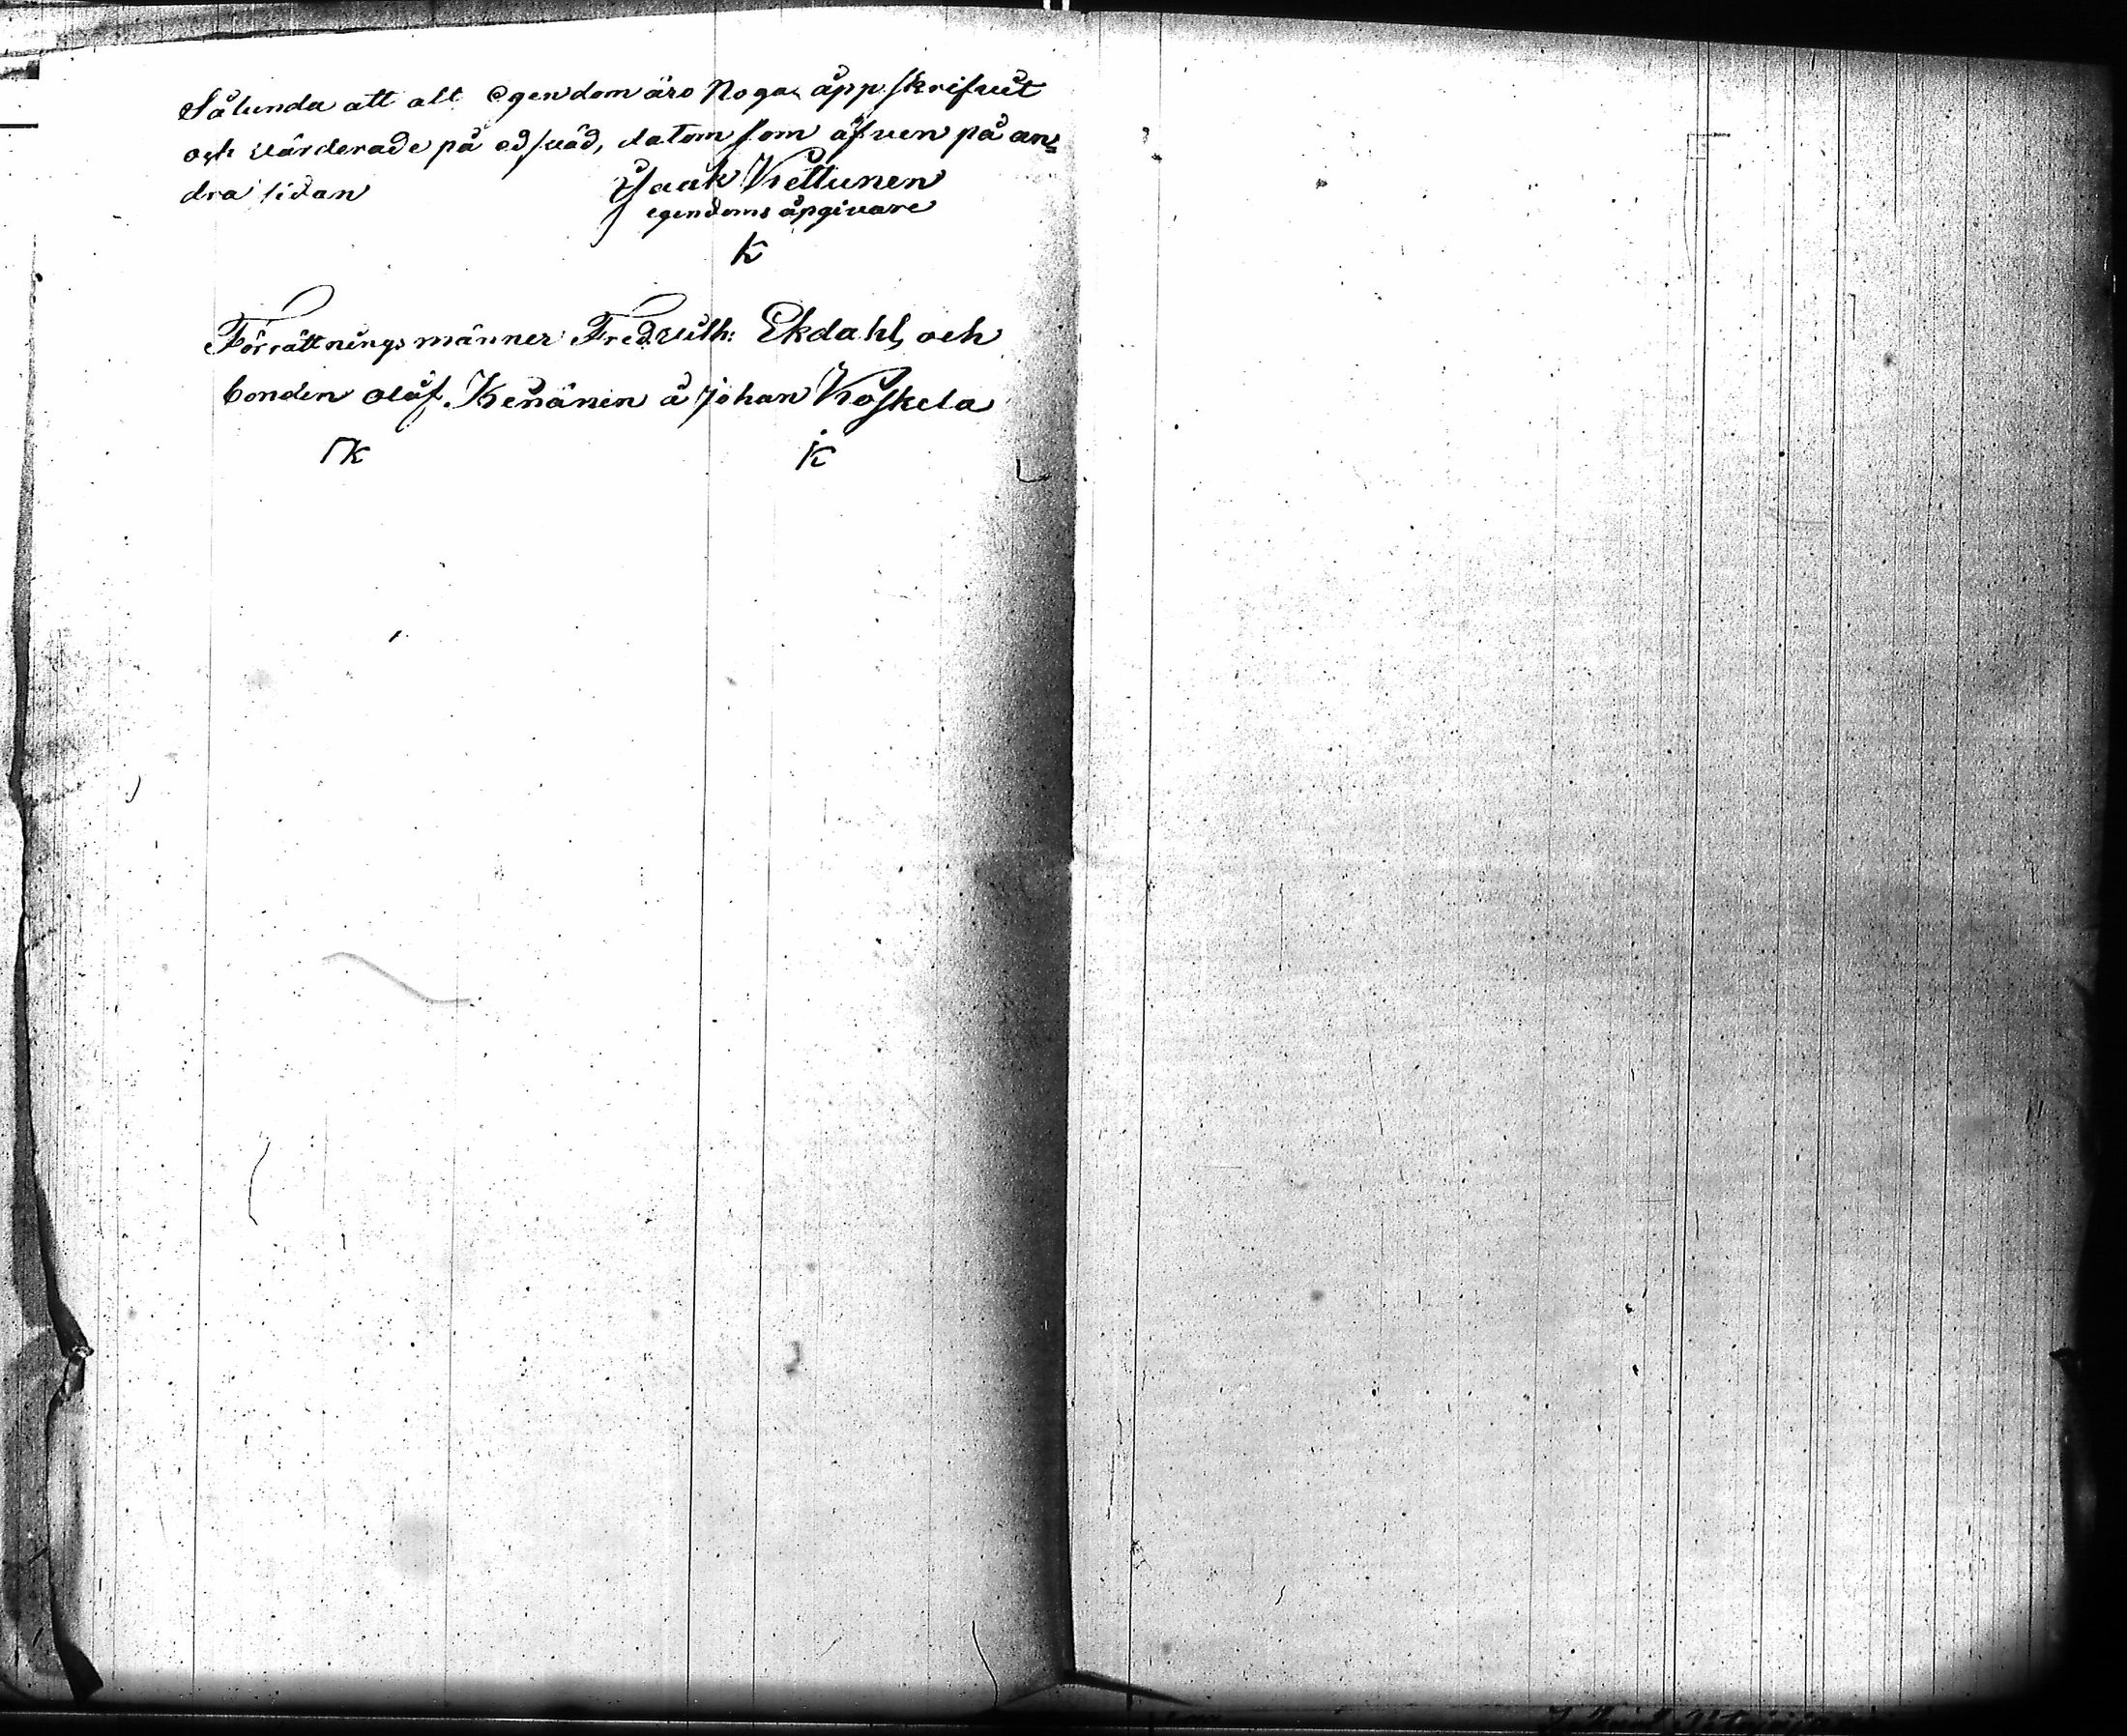 Sålunda att alt egendom äro Noga uppskrifvit
och värderade på ed svad, datom som äfven på an=
dra sidan
Isaak Kettunen
egendoms upgivare
K
Förrättnings männer: Fred Ekdahl, och
bonden oluf Kenänin å Johan Koskela
K
K